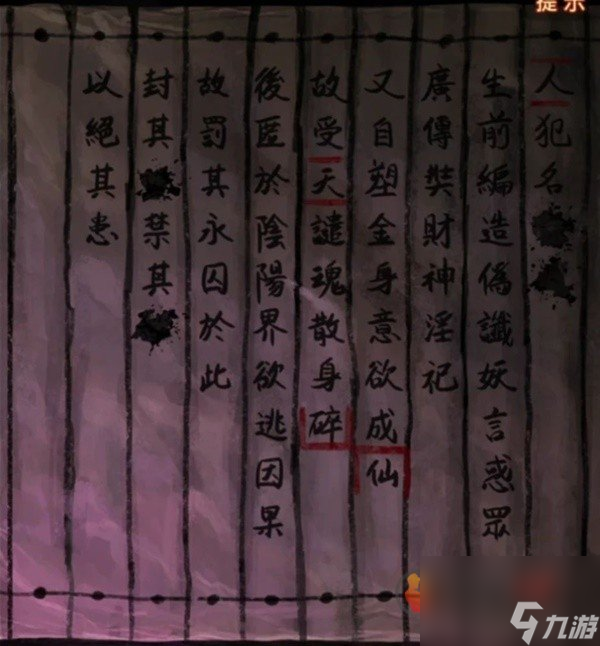 提示
人犯名
生前編造偽讖妖言惑眾
廣傳奘財神淫祀
又自塑金身意欲成仙
故受天譴魂散身碎
後匿於陰陽界欲逃因果
故罰其永囚於此
封其 禁其
以絕其患
九游